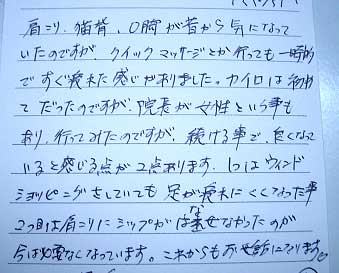 肩こり、猫背、O脚が昔から気になって
いたのですが、クイックマッサージとか行っても一時的
ですぐ疲れた感じがありました。カイロは初め
てだったのですが、院長が女性という事も
あり、行ってみたのですが、続ける事で、良くなって
いると感じる点が2点あります。1つはウィンド
ショッピングをしていても足が疲れにくくなった事
2つ目は肩こりにシップがはなせなかったのが
今は必要なくなっています。これからもお世話になります。